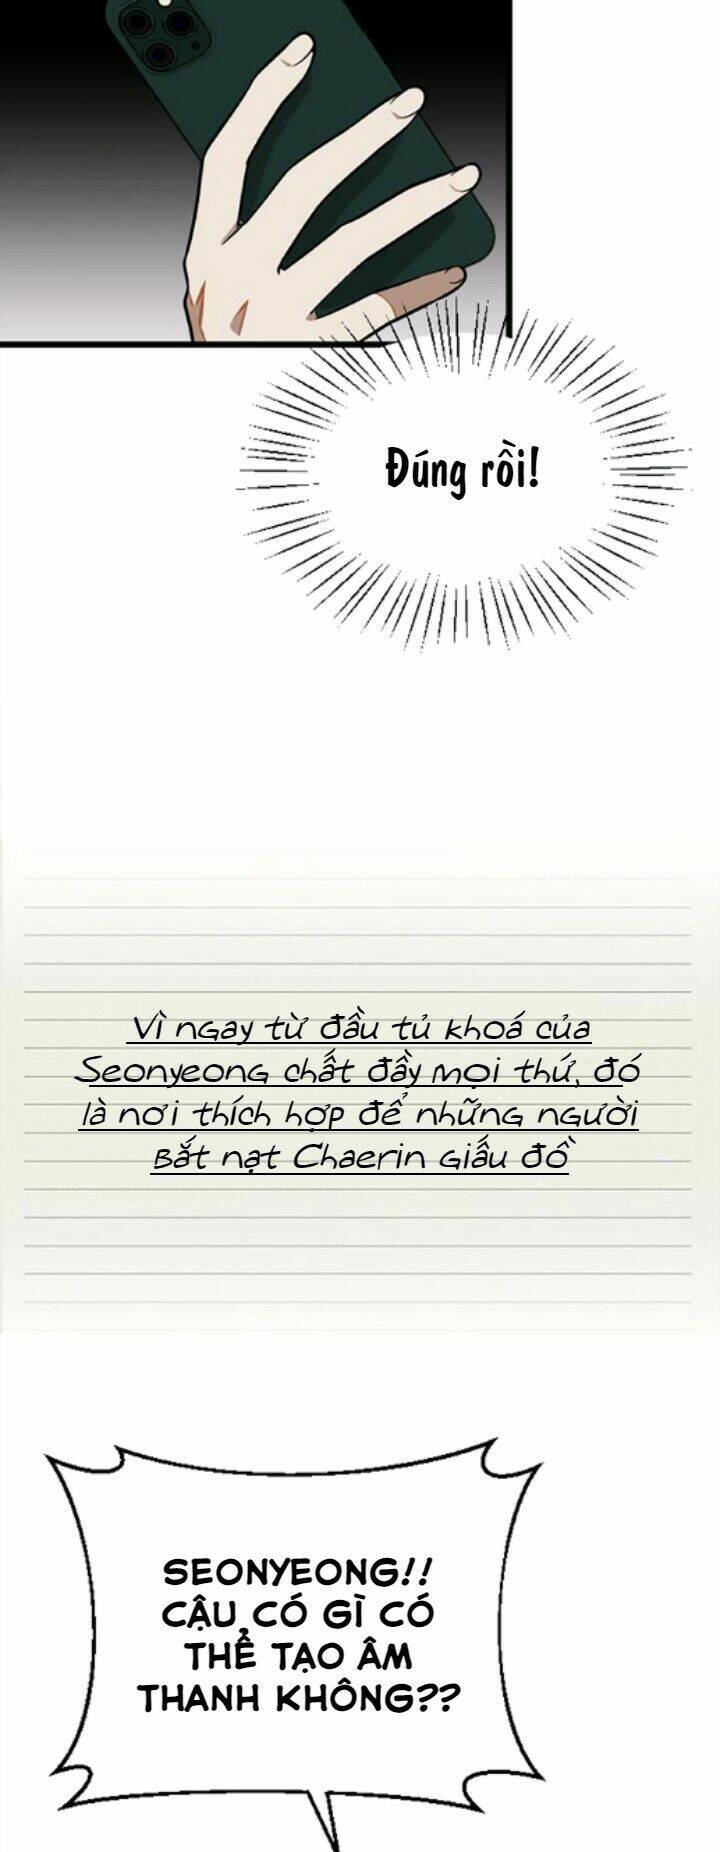 Đúng rồi!
Vì ngay từ đầu tủ khoá của
Seonyeong chất đầy mọi thứ, đó
là nơi thích hợp để những người
Bắt nạt Chaerin giấu đồ
SEONYEONG!!
CẬU CÓ GÌ CÓ
THỂ TẠO ÂM
THANH KHÔNG??